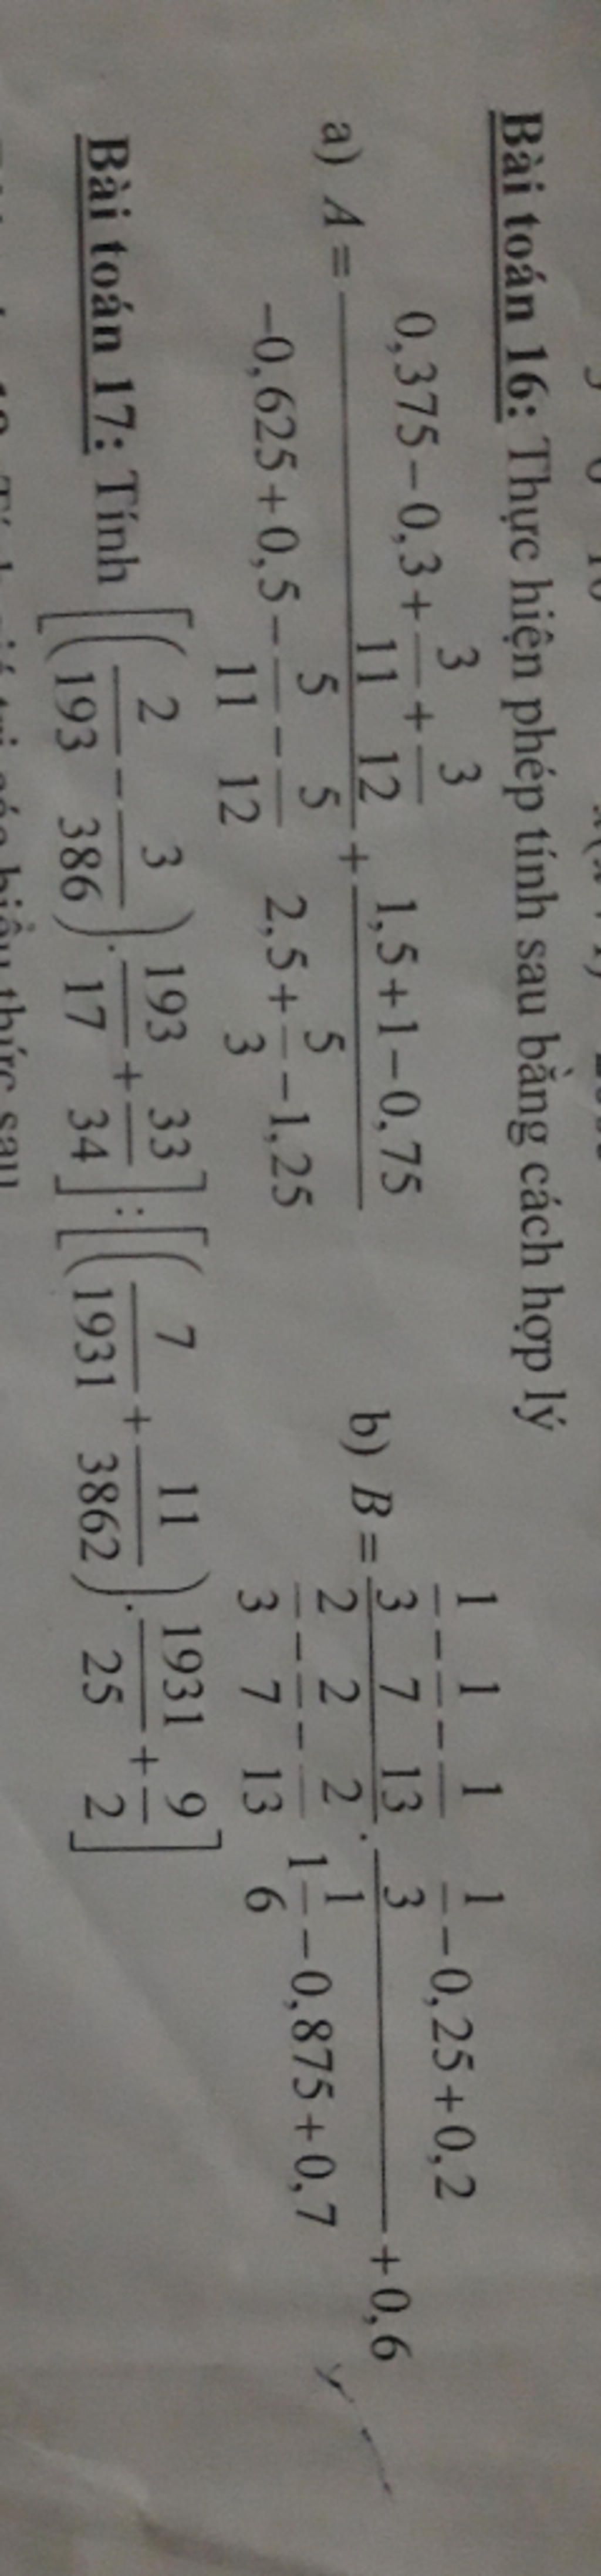 Bài toán 16: Thực hiện phép tính sau bằng cách hợp lý
a) A = \frac{0,375-0,3+\frac{3}{11}+\frac{3}{12}}{-0,625+0,5-\frac{5}{11}-\frac{5}{12}} + \frac{1,5+1-0,75}{2,5+\frac{5}{3}-1,25} b) B = \frac{\frac{1}{3}-\frac{1}{7}-\frac{1}{13}}{\frac{2}{3}-\frac{2}{7}-\frac{2}{13}} . \frac{\frac{1}{3}-0,25+0,2}{1\frac{1}{6}-0,875+0,7} + 0,6
Bài toán 17: Tính [(\frac{2}{193}-\frac{3}{386}).\frac{193}{17}+\frac{33}{34}] : [(\frac{7}{1931}+\frac{11}{3862}).\frac{1931}{25}+\frac{9}{2}]